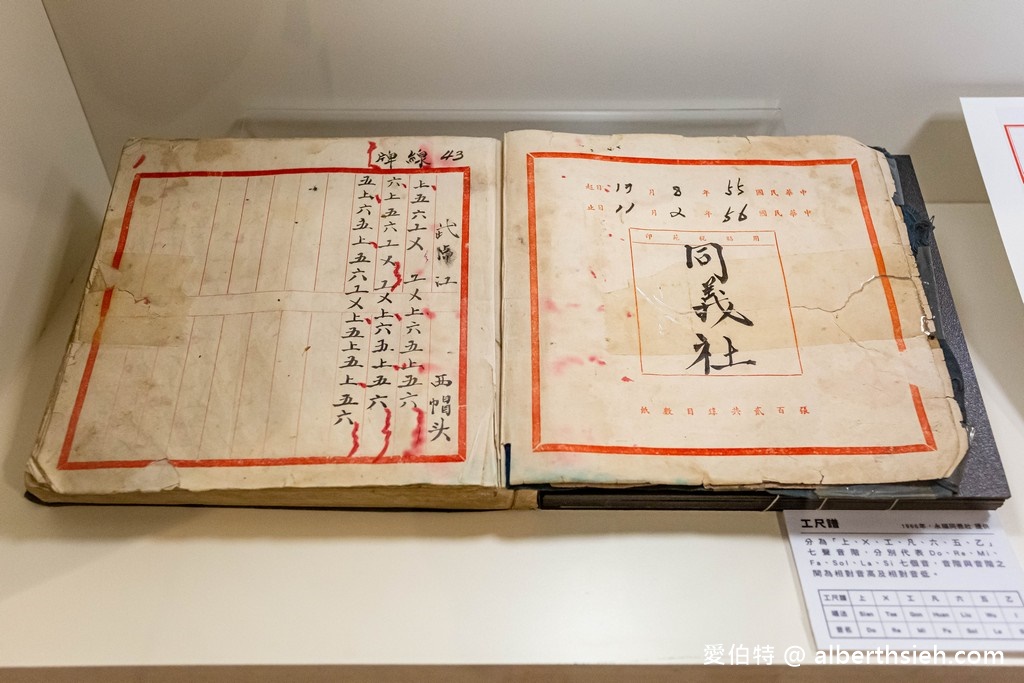 43 線牌
西帽头
上五六工乂 工乂上六五上五六
六上五六工乂 工乂上六五上五六
五上六五上五六工乂上五上五上五六
中華民國 55 年 8 月 19 日起
中華民國 56 年 2 月 11 日止
同義社
紙數目錄共貳百張
工尺譜
分為「上、乂、工、凡、六、五、乙」
七聲音階，分別代表Do、Re、Mi、
Fa、Sol、La、Si 七個音，音階與音階之
間為相對音高及相對音低。
工尺譜 上 乂 工 凡 六 五 乙
唱法
音名 Do Re Mi Fa Sol La S
愛伯特 @ alberthsieh.com